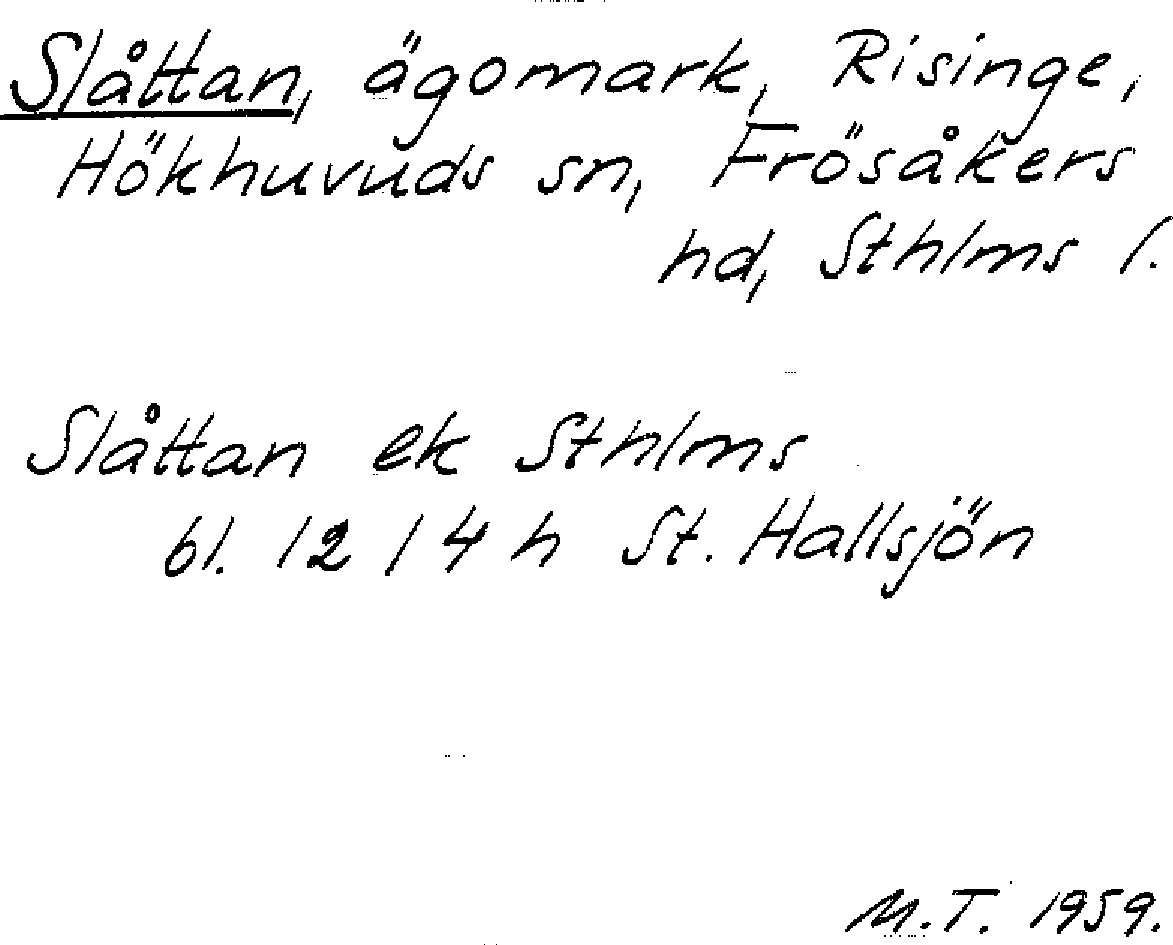 Slåttan, ägomark, Risinge,
Hökhuvuds sn, Frösåkers
hd, Sthlms l.
Slåttan ek Sthlms
bl. 12 14 h St. Hallsjön
M.T. 1959.